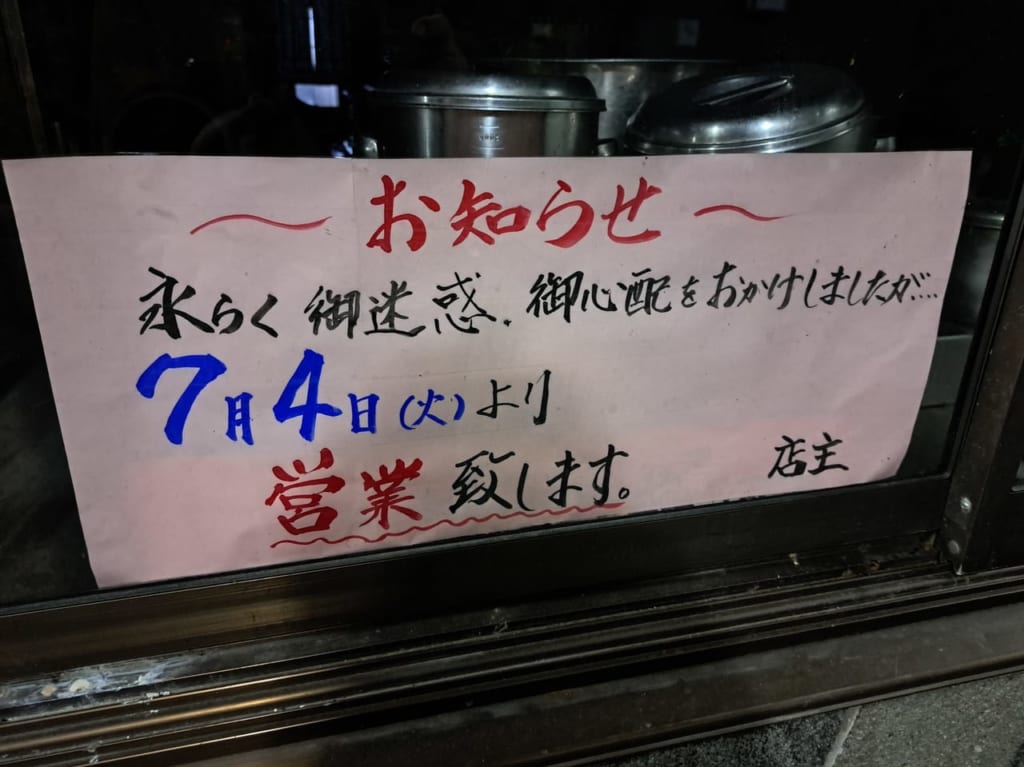 〜お知らせ〜
永らく御迷惑、御心配をおかけしましたが....
7月4日(火)より
営業致します。 店主